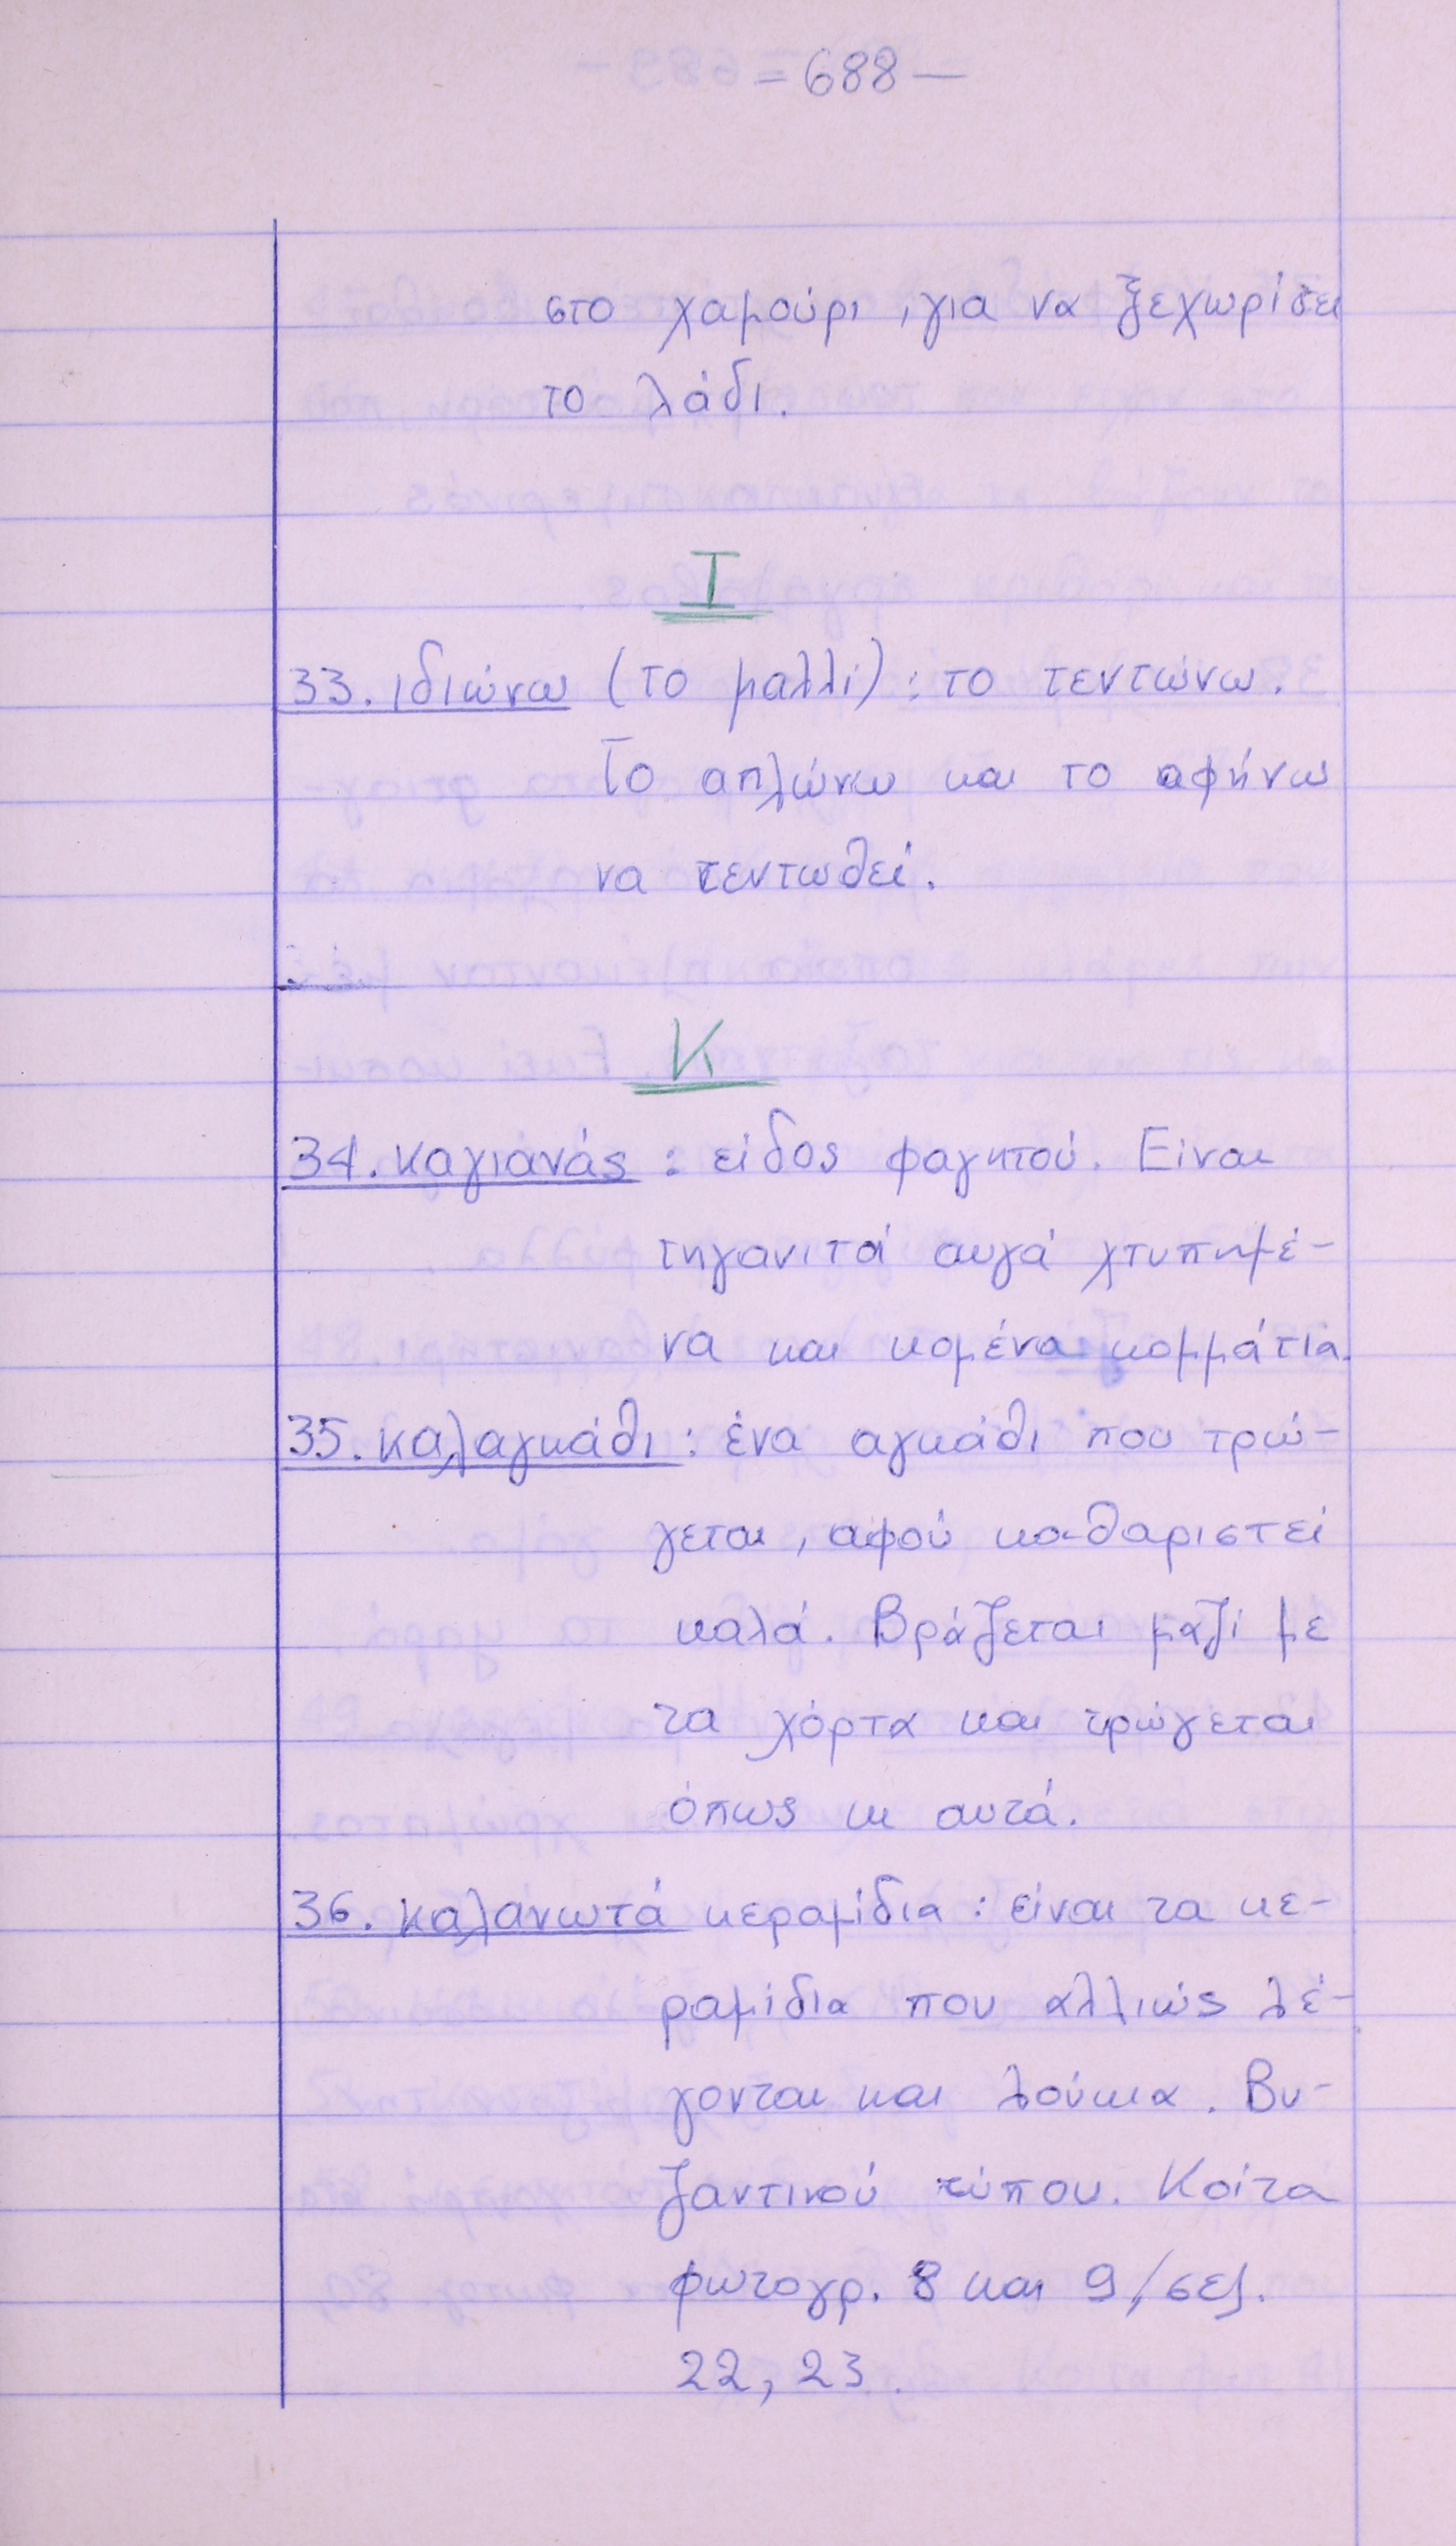 =688—
στο χαμούρι, για να ξεχωρίσει
το λάδι.
Ι
33. ιδιώνω (το μαλλί): το τεντώνω.
Το απλώνω και το αφήνω
να τεντωθεί.
Κ
34. καγιανάς: είδος φαγητού. Είναι
τηγανιτά αυγά χτυπημέ-
να και κομένα κομμάτια.
35. καλαγκάθι: ένα αγκάθι που τρώ-
γεται, αφού καθαριστεί
καλά. Βράζεται μαζί με
τα χόρτα και τρώγεται
όπως κι αυτά.
36. καλανωτά κεραμίδια: είναι τα κε-
ραμίδια που αλλιώς λέ-
γονται και λούκια. Βυ-
ζαντινού τύπου. Κοίτα
φωτογρ. 8 και 9/σελ.
22, 23.